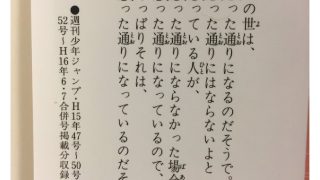 の世は、
った通りになるのだそうで。
った通りにはならないよと
っている人が、
った通りにならなかった場合
った通りになっているので、
っぱりそれは、
った通りになっているのだそ
●週刊少年ジャンプ・H15年47号〜50号
52号〜H16年6・7合併号掲載分収録